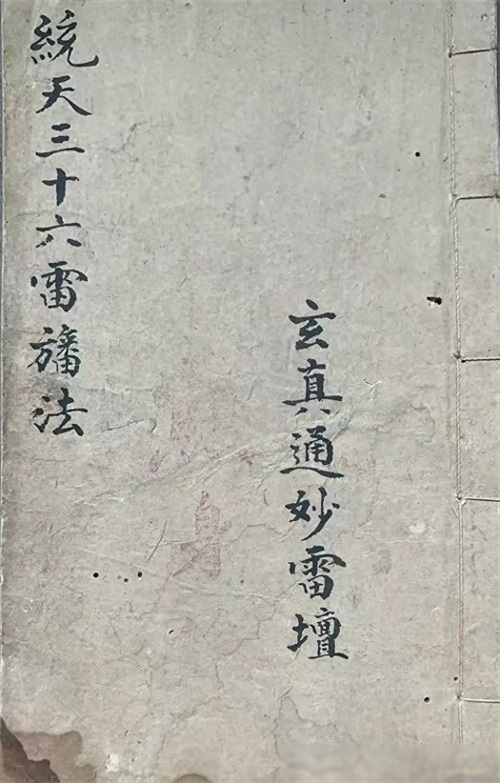 玄真通妙雷壇
統天三十六雷旛法